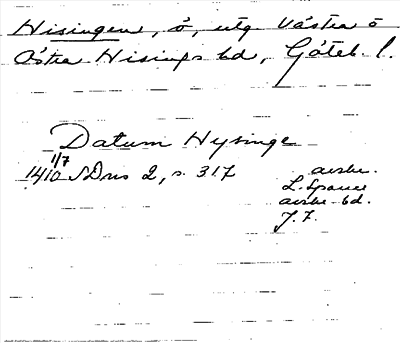 Hisingen, ö, utg. Västra o
Östra Hisings hd, Göteb. l.
Datum Hysinge
1/7
1410 SDns 2, s. 317
avskr.
avskr. bd.
J. F.